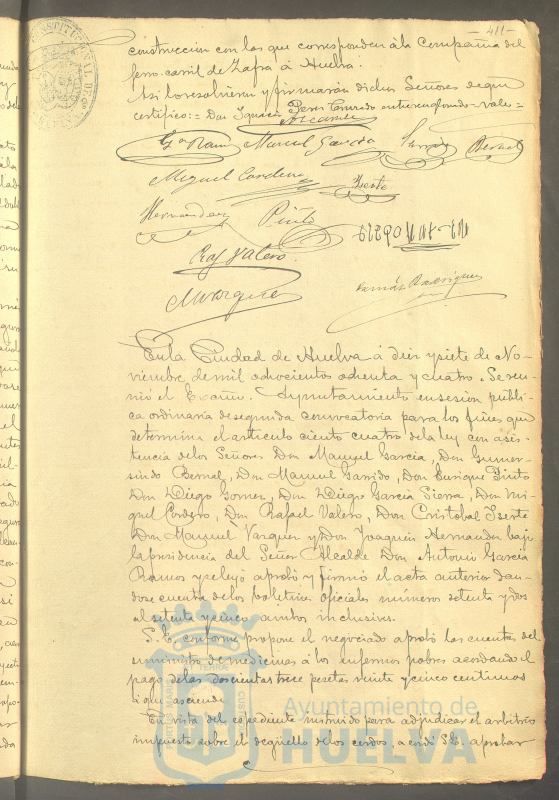 411
construccion con las que corresponden á la Compañia del
ferro-carril de Zafra á Huelva.
Asi lo resolvieron y firmarán dichos Señores de que
certifico:= Don Ignacio Perez entrerenglonado=vale=
Manuel Garcia Bernal
Miguel Cordero Iserte
Hernandez Pinto
Raf Valero
Vazquez Tomás Rodriguez
En la Ciudad de Huelva á diez y siete de No-
viembre de mil ochocientos ochenta y cuatro. Se reu-
nió el Excmo. Ayuntamiento en sesion públi-
ca ordinaria de segunda convocatoria para los fines que
determina el articulo ciento cuatro de la ley con asis-
tencia de los Señores Don Manuel Garcia, Don Gumer-
sindo Bernal, Don Manuel Garrido, Don Enrique Pinto
Don Diego Gomez, Don Diego Garcia Sierra, Don Mi-
guel Cordero, Don Rafael Valero, Don Cristobal Iserte
Don Manuel Vazquez y Don Joaquin Hernandez bajo
la presidencia del Señor Alcalde Don Antonio Garcia
Ramos y se leyó aprobó y firmó el acta anterior dan-
dose cuenta de los boletines oficiales números setenta y dos
al setenta y cinco ambos inclusives.
S. E. conforme propone el negociado aprobó las cuentas del
suministro de medicinas á los enfermos pobres acordando el
pago de las doscientas trece pesetas veinte y cinco centimos
á que asciende
En vista del expediente instruido para adjudicar el arbitrio
impuesto sobre el degüello de los cerdos, acordó S.E. aprobar
Ayuntamiento de
HUELVA